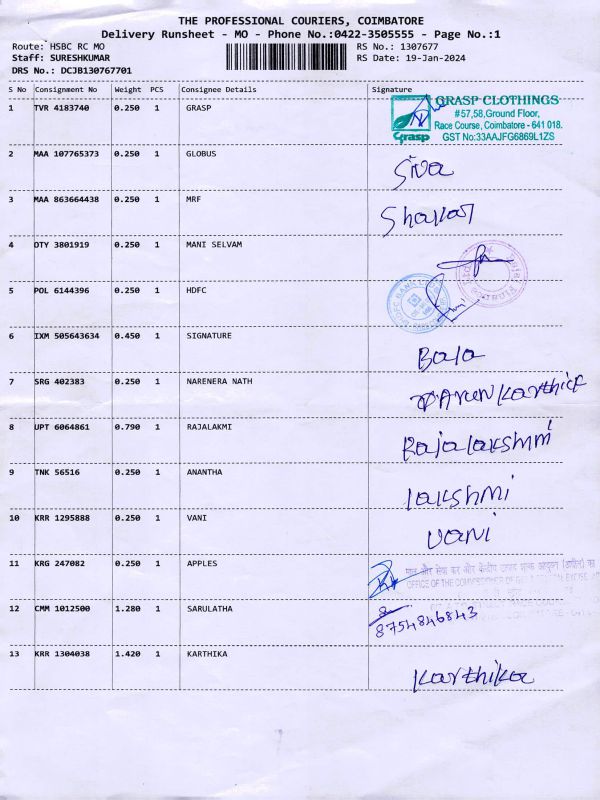 THE PROFESSIONAL COURIERS, COIMBATORE
Delivery Runsheet - MO - Phone No.:0422-3505555 - Page No.:1
Route: HSBC RC MO RS No.: 1307677
Staff: SURESHKUMAR RS Date: 19-Jan-2024
DRS No.: DCJB130767701
S No Consignment No Weight PCS Consignee Details Signature
1 TVR 4183740 0.250 1 GRASP
GRASP CLOTHINGS
#57,58,Ground Floor,
Race Course, Coimbatore - 641 018.
Grasp GST No:33AAJFG6869L1ZS
2 MAA 107765373 0.250 1 GLOBUS
Siva
3 MAA 863664438 0.250 1 MRF
4 OTY 3801919 0.250 1 MANI SELVAM
5 POL 6144396 0.250 1 HDFC
HDFC BANK
6 IXM 505643634 0.450 1 SIGNATURE
Bala
7 SRG 402383 0.250 1 NARENERA NATH
Arun Karthick
8 UPT 6064861 0.790 1 RAJALAKMI
Rajalakshmi
9 TNK 56516 0.250 1 ANANTHA
lakshmi
10 KRR 1295888 0.250 1 VANI
vani
11 KRG 247082 0.250 1 APPLES
माल और सेवा कर और केंद्रीय उत्पाद शुल्क आयुक्त (अपील) का
OFFICE OF THE COMMISSIONER OF
12 CMM 1012500 1.280 1 SARULATHA
8754846843
13 KRR 1304038 1.420 1 KARTHIKA
Karthika